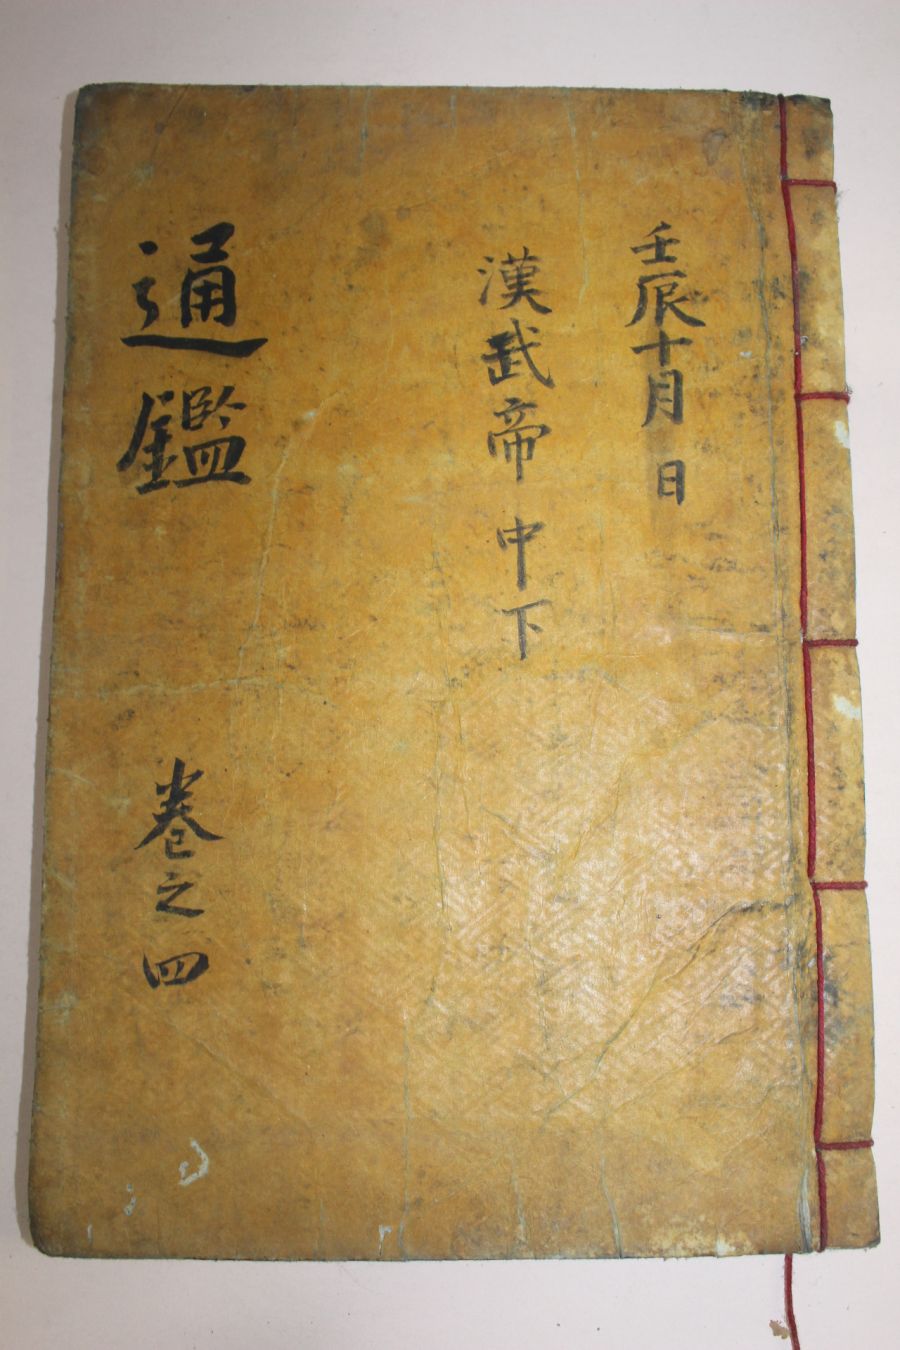 壬辰十月 日
漢武帝 中下
通鑑 卷之四